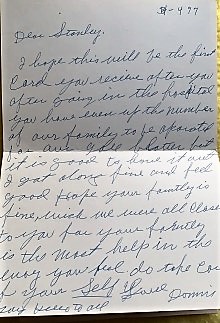 4-77
Dear Stanley.
I hope this will be the first
Card you receive after you
after going in the hospital
You have even up the number
of our family to be operated
it is good to have it out
I got along fine and feel
good hope your family is
fine, wish we were all close
to you for your family
is the most help in the
way you feel do take Car
of your Self Love Donnis
say Hello to all